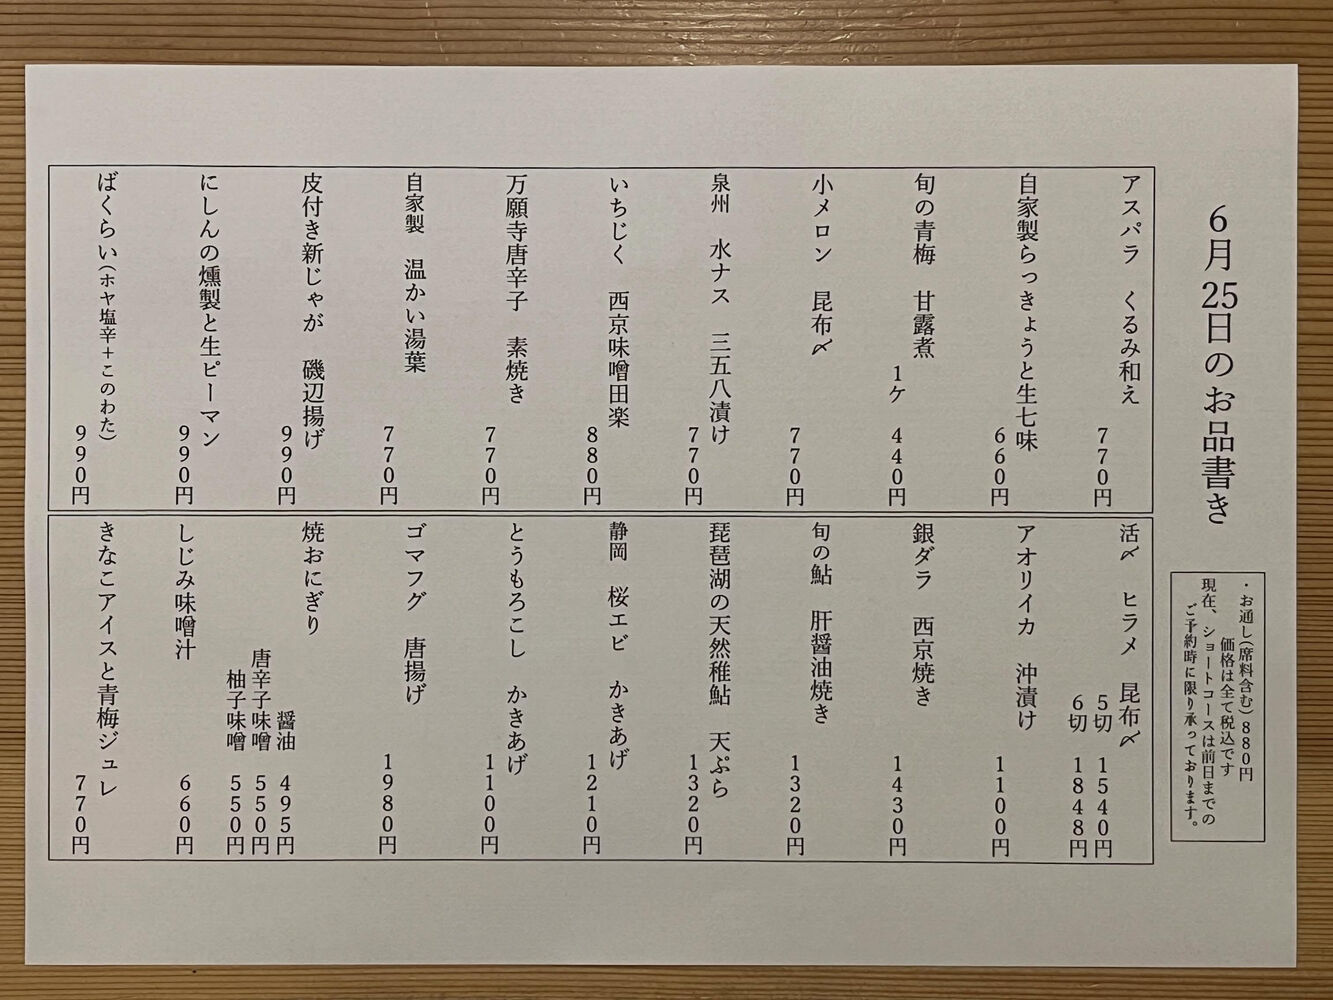 6月25日のお品書き
・お通し(席料含む)880円
価格は全て税込です
現在、ショートコースは前日までの
ご予約時に限り承っております。
アスパラ くるみ和え 770円
自家製らっきょうと生七味 660円
旬の青梅 甘露煮 1ケ 440円
小メロン 昆布〆 770円
泉州 水ナス 三五八漬け 770円
いちじく 西京味噌田楽 880円
万願寺唐辛子 素焼き 770円
自家製 温かい湯葉 770円
皮付き新じゃが 磯辺揚げ 990円
にしんの燻製と生ピーマン 990円
ばくらい(ホヤ塩辛+このわた) 990円
活〆 ヒラメ 昆布〆
5切 1540円
6切 1848円
アオリイカ 沖漬け 1100円
銀ダラ 西京焼き 1430円
旬の鮎 肝醤油焼き 1320円
琵琶湖の天然稚鮎 天ぷら 1320円
静岡 桜エビ かきあげ 1210円
とうもろこし かきあげ 1100円
ゴマフグ 唐揚げ 1980円
焼おにぎり
醤油 495円
唐辛子味噌 550円
柚子味噌 550円
しじみ味噌汁 660円
きなこアイスと青梅ジュレ 770円